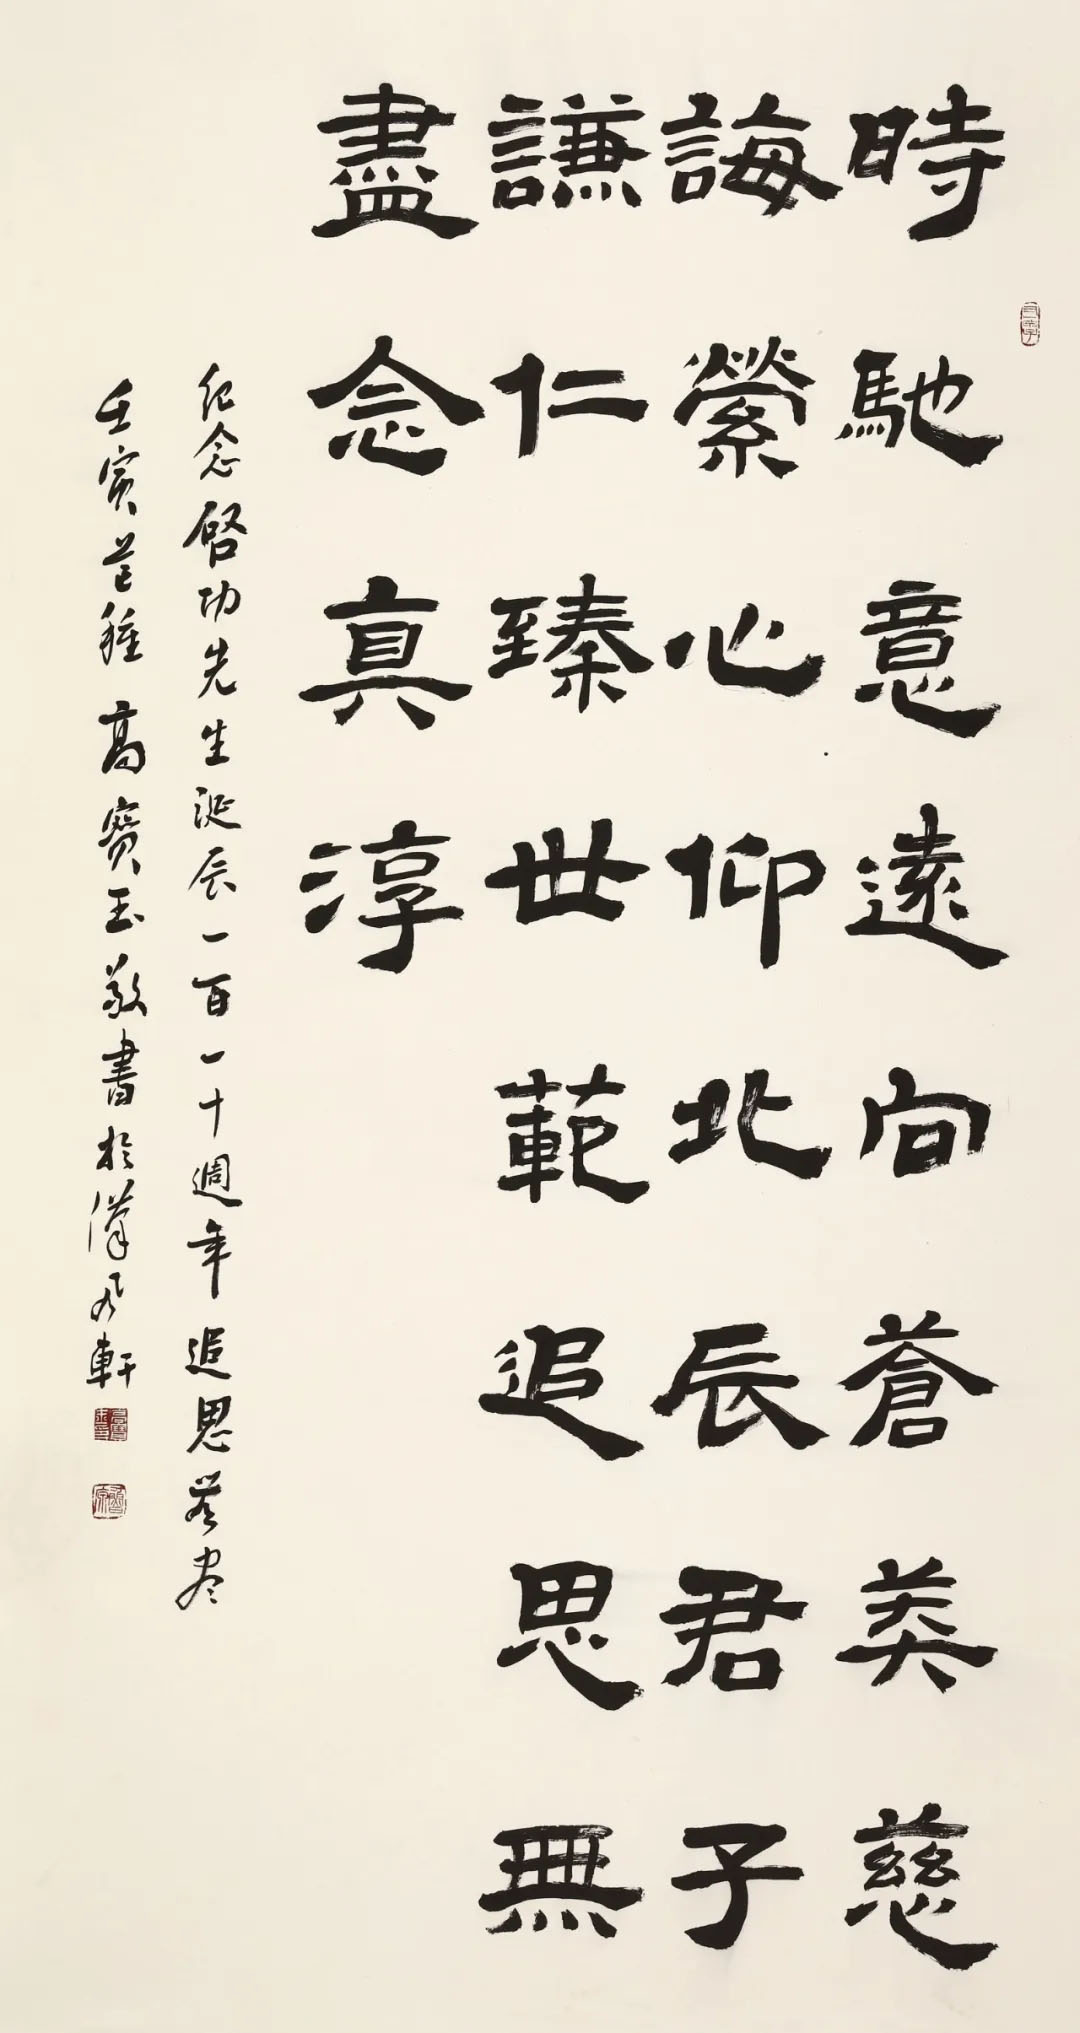 時馳意遠向蒼美慈
誨縈心仰北辰君子
謙仁臻世範追思無
盡念真淳
紀念啓功先生誕辰一百一十週年追思無尽
壬寅芒種高寶玉敬書於漢風軒